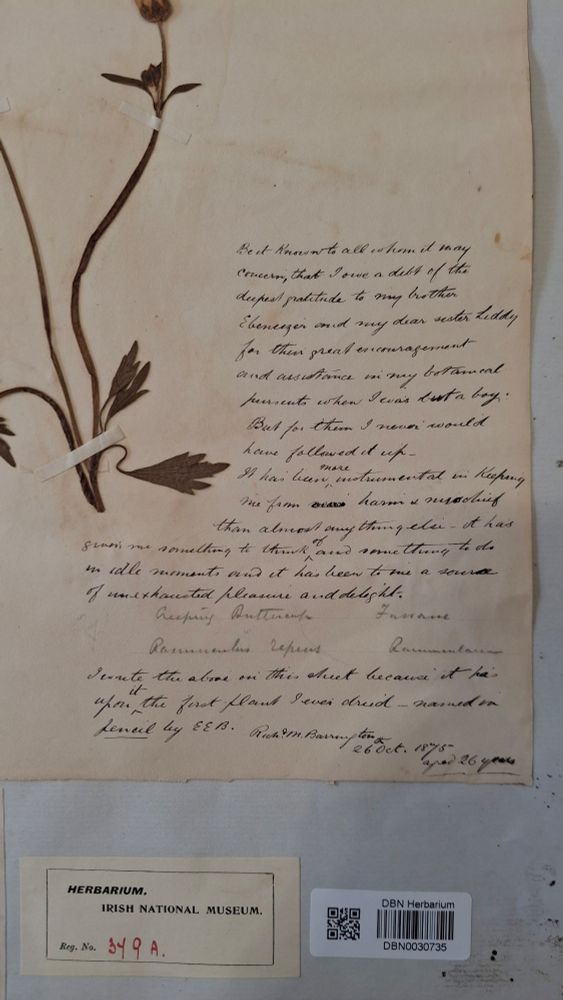 Be it Known to all whom it may
concern, that I owe a debt of the
deepest gratitude to my brother
Ebenezer and my dear sister Liddy
for their great encouragement
and assistance in my botanical
pursuits when I was but a boy.
But for them I never would
have followed it up –
It has been more instrumental in Keeping
me from harm & mischief
than almost anything else – it has
given me something to think of and something to do
in idle moments and it has been to me a source
of unexhausted pleasure and delight.
Creeping Buttercup Fassaroe
Ranunculus repens Ranunculaceae
I write the above on this sheet because it has
upon it the first plant I ever dried – named in
pencil by EEB. Richd. M. Barrington
26th Oct. 1875
aged 26 years
HERBARIUM.
IRISH NATIONAL MUSEUM.
Reg. No. 349 A.
DBN Herbarium
DBN0030735